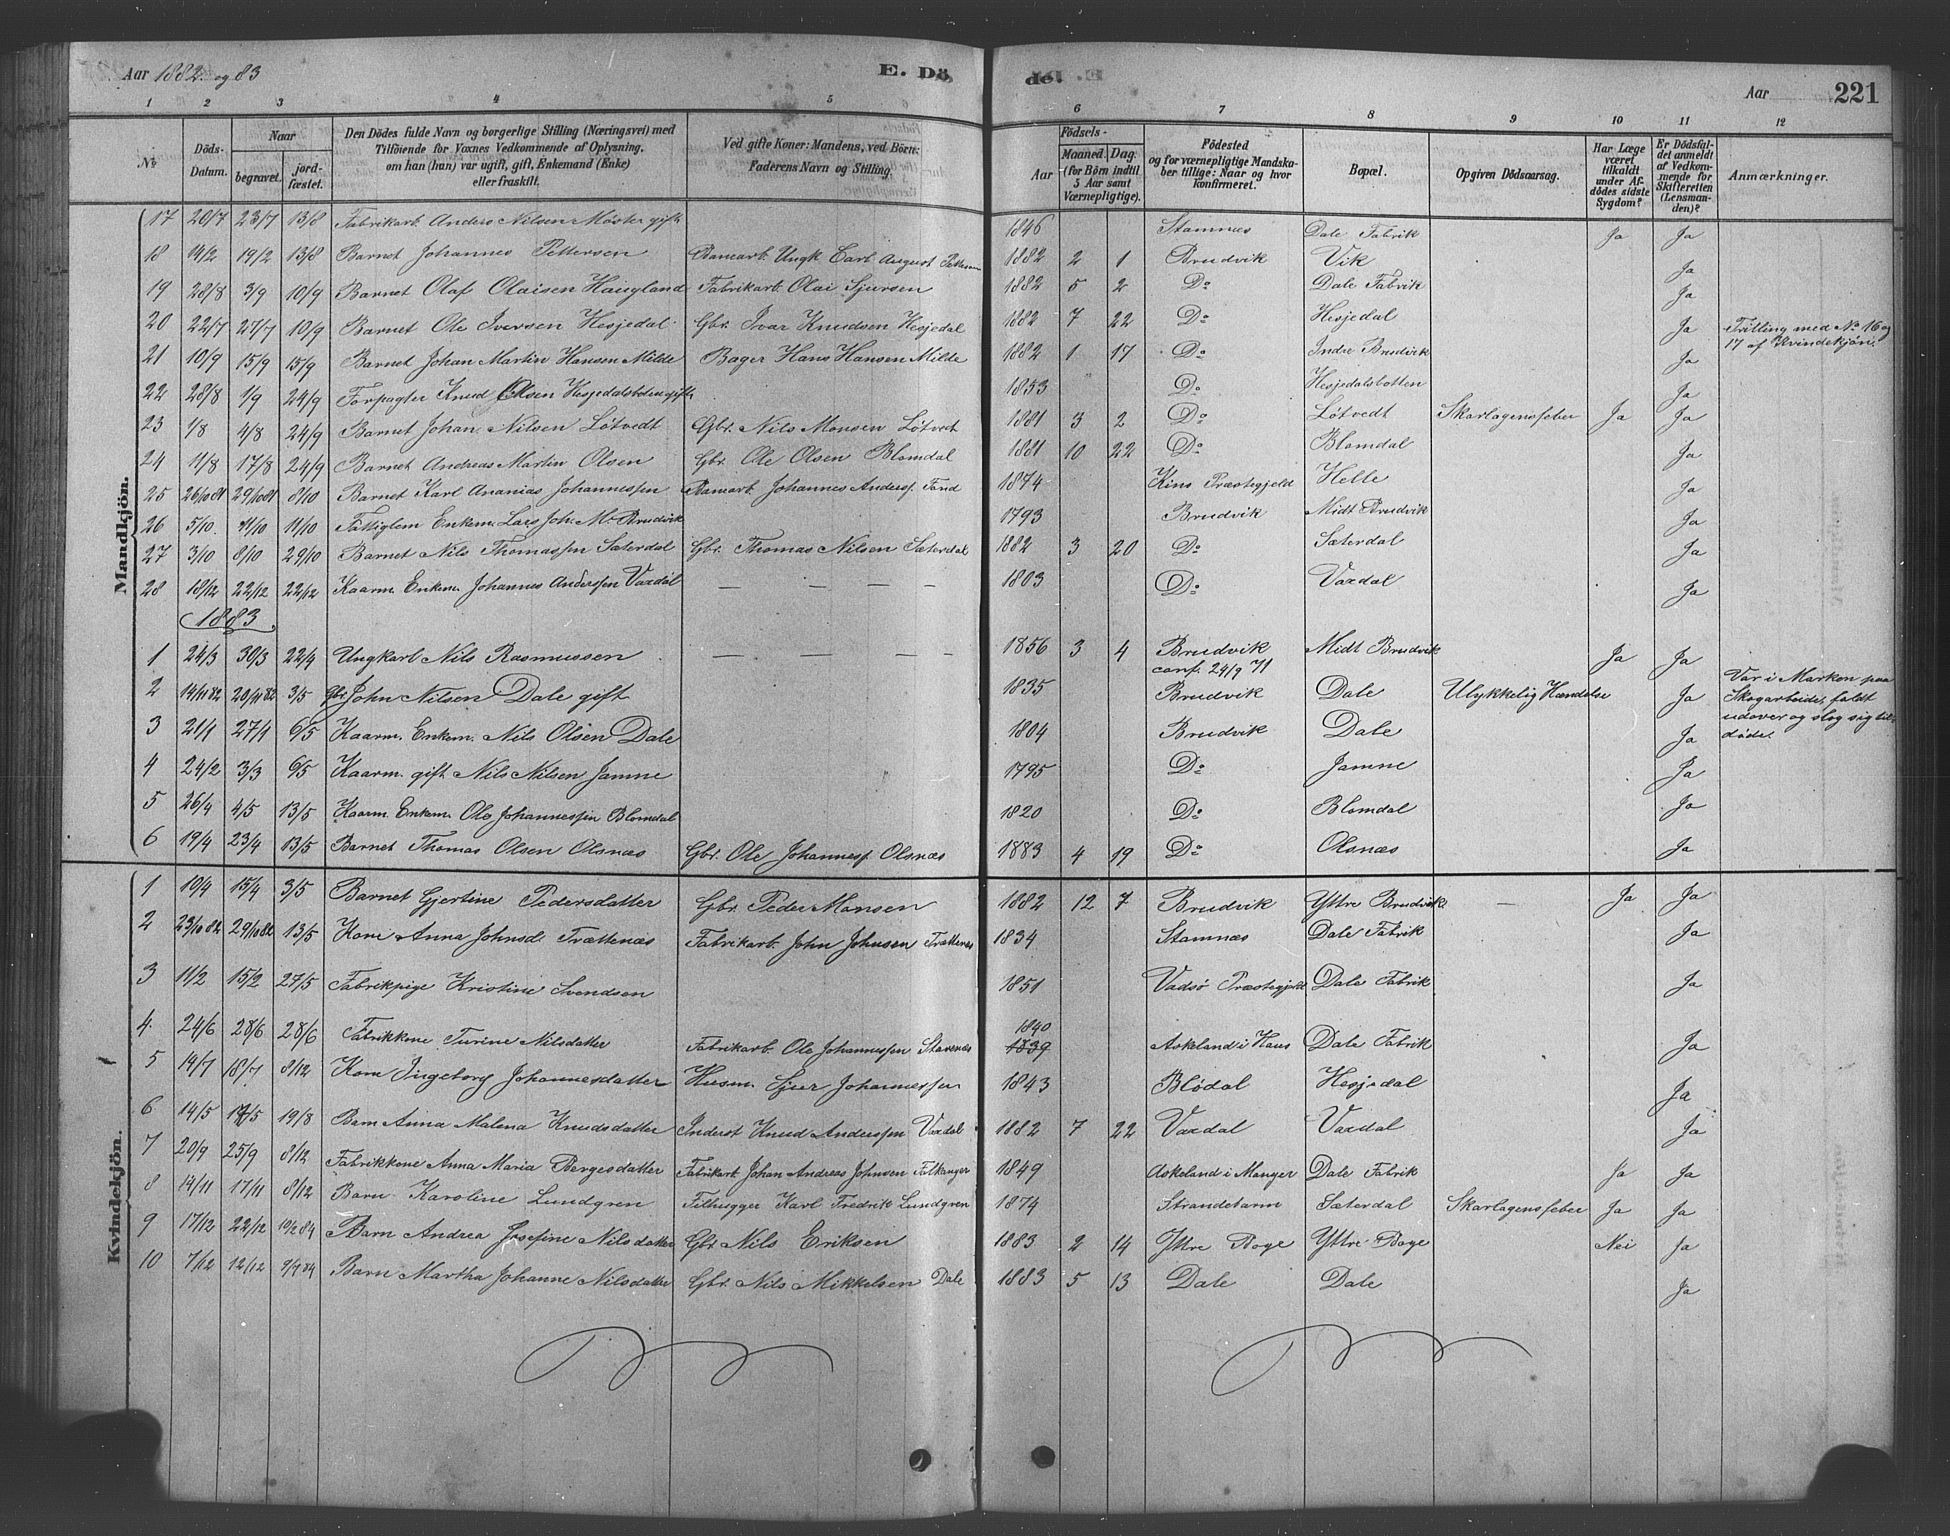 Aar 1882 og 83 E. Dö de. Aar 221
1 2 3 4 5 6 7 8 9 10 11 12
No. Döds-Datum. Naar begravet. jordfæstet. Den Dödes fulde Navn og borgerlige Stilling (Næringsvei) med Tilföiende for Voxnes Vedkommende af Oplysning, om han (hun) var ugift, gift, Enkemand (Enke) eller fraskilt. Ved gifte Koner: Mandens, ved Börn: Faderens Navn og Stilling. Födsels- Aar Maaned. Dag. (for Börn indtil 5 Aar samt Værnepligtige). Födested og for værnepligtige Mandskaber tillige: Naar og hvor konfirmeret. Bopæl. Opgiven Dödsaarsag. Har Læge været tilkaldt under Afdödes sidste Sygdom? Er Dödsfaldet anmeldt af Vedkommende for Skifteretten (Lensmanden)? Anmærkninger.
Mandkjön.
17 20/7 23/7 13/8 Fabrikarb. Anders Nilsen Møster gift 1846 Stamnes Dale Fabrik Ja Ja
18 14/2 19/2 13/8 Barnet Johannes Pettersen Banearb. Ungk Carl August Pettersen 1882 2 1 Brudvik Vik Ja
19 28/8 3/9 10/9 Barnet Olaf Olaisen Haugland Fabrikarb. Olai Sjursen 1882 5 2 Do Dale Fabrik Ja
20 22/7 27/7 10/9 Barnet Ole Iversen Hesjedal Gbr. Ivar Knudsen Hesjedal 1882 7 22 Do Hesjedal Ja Trilling med No 16 og 17 af Kvindekjön.
21 10/9 15/9 15/9 Barnet Johan Martin Hansen Milde Bager Hans Hansen Milde 1882 1 17 Do Indre Brudvik Ja
22 28/8 1/9 24/9 Forpagter Knud Olsen Hesjedalsbotten gift 1853 Do Hesjedalsbotten Ja
23 1/8 4/8 24/9 Barnet Johan Nilsen Løtvedt Gbr. Nils Monsen Løtvedt 1881 3 2 Do Løtvedt Skarlagensfeber Ja Ja
24 11/8 17/8 24/9 Barnet Andreas Martin Olsen Gbr. Ole Olsen Blomdal 1881 10 22 Do Blomdal Ja
25 26/10 81 29/10 81 8/10 Barnet Karl Ananias Johannessen Banearb. Johannes Anders. 1874 Kins Præstegjeld Helle Ja
26 5/10 11/10 11/10 Fattiglem Enkem. Lars Joh. M. Brudvik 1793 Brudvik Midt Brudvik Ja
27 3/10 8/10 29/10 Barnet Nils Thomassen Sæterdal Gbr. Thomas Nilsen Sæterdal 1882 3 20 Do Sæterdal Ja
28 18/12 22/12 22/12 Kaarm. Enkem. Johannes Anderssen Vaxdal — — — — 1803 Do Vaxdal Ja
1883
1 24/3 30/3 22/4 Ungkarl Nils Rasmussen — — — — 1856 3 4 Brudvik conf. 24/9 71 Midt Brudvik Ja Ja
2 14/11 82 20/11 82 3/5 Gbr. John Nilsen Dale gift 1835 Brudvik Dale Ulykkelig Hændelse Ja Var i Marken paa Skogarbeide, faldt udover og slog sig til døde.
3 21/1 27/1 6/5 Kaarm. Enkem. Nils Olsen Dale 1804 Brudvik Dale Ja
4 24/2 3/3 6/5 Kaarm. gift Nils Nilsen Jamne 1795 Do Jamne Ja
5 26/4 4/5 13/5 Kaarm. Enkem. Ole Johannessen Blomdal 1820 Do Blomdal Ja
6 19/4 23/4 13/5 Barnet Thomas Olsen Olsnæs Gbr. Ole Johannes. Olsnæs 1883 4 19 Do Olsnæs Ja
Kvindekjön.
1 10/4 15/4 3/5 Barnet Gjertine Pedersdatter Gbr. Peder Monsen 1882 12 7 Brudvik Yttre Brudvik — Ja Ja
2 23/10 82 29/10 82 13/5 Kone Anna Johnsd. Trættenæs Fabrikarb. John Johnsen Trættenæs 1834 Stamnæs Dale Fabrik Ja
3 11/2 15/2 27/5 Fabrikpige Kristine Svendsen 1851 Vadsö Præstegjeld Dale Fabrik Ja
4. 24/6 28/6 28/6 Fabrikkone Turine Nilsdatter Fabrikarb. Ole Johannessen Stavenæs 1840 1839 Askeland i Haus Dale Fabrik Ja
5 14/7 18/7 8/12 Kone Ingeborg Johannesdatter Husm. Sjur Johannessen 1843 Blødal Hesjedal Ja
6 14/5 17/5 19/8 Barn Anna Malena Knudsdatter Inderst Knud Anderssen Vaxdal 1882 7 22 Vaxdal Vaxdal Ja
7 20/9 25/9 8/12 Fabrikkone Anna Maria Børgesdatter Fabrikarb. Johan Andreas Johnsen 1849 Askeland i Manger Dale Fabrik Ja Ja
8 14/11 17/11 8/12 Barn Karoline Lundgren Filhugger Karl Fredrik Lundgren 1874 Strandebarm Sæterdal Skarlagensfeber Ja Ja
9 17/12 22/12 10/2 84 Barn Andrea Josefine Nilsdatter Gbr. Nils Eriksen 1883 2 14 Yttre Boge Yttre Boge Nei Ja
10 7/12 12/12 9/4 84 Barn Martha Johanne Nilsdatter Gbr. Nils Mikkelsen Dale 1883 5 13 Dale Dale Ja